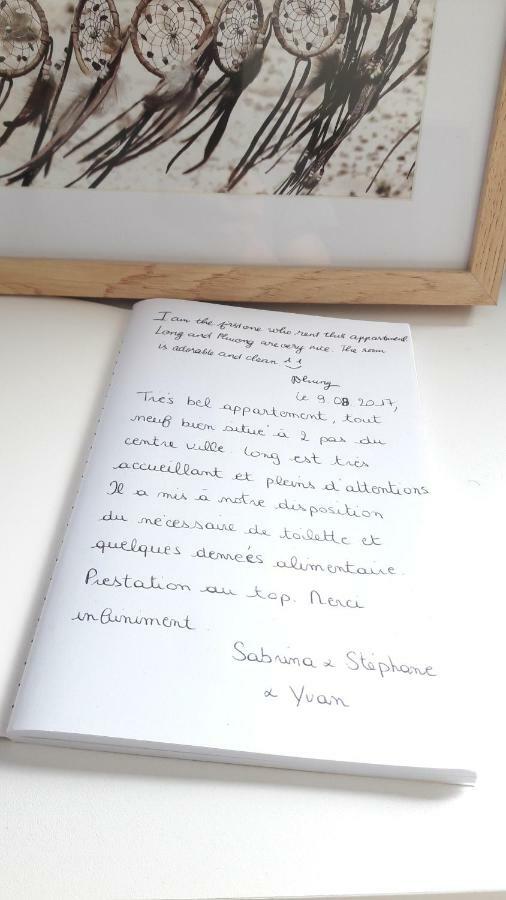 I am the first one who rent this appartment
Long and Phuong are very nice. The room
is adorable and clean
Le 9.08.2017,
Très bel appartement, tout
neuf bien situé à 2 pas du
centre ville. Long est très
accueillant et pleins d'attentions
Il a mis à notre disposition
du nécessaire de toilette et
quelques denrées alimentaire.
Prestation au top. Merci
infiniment
Sabrina & Stéphane
& Yvan